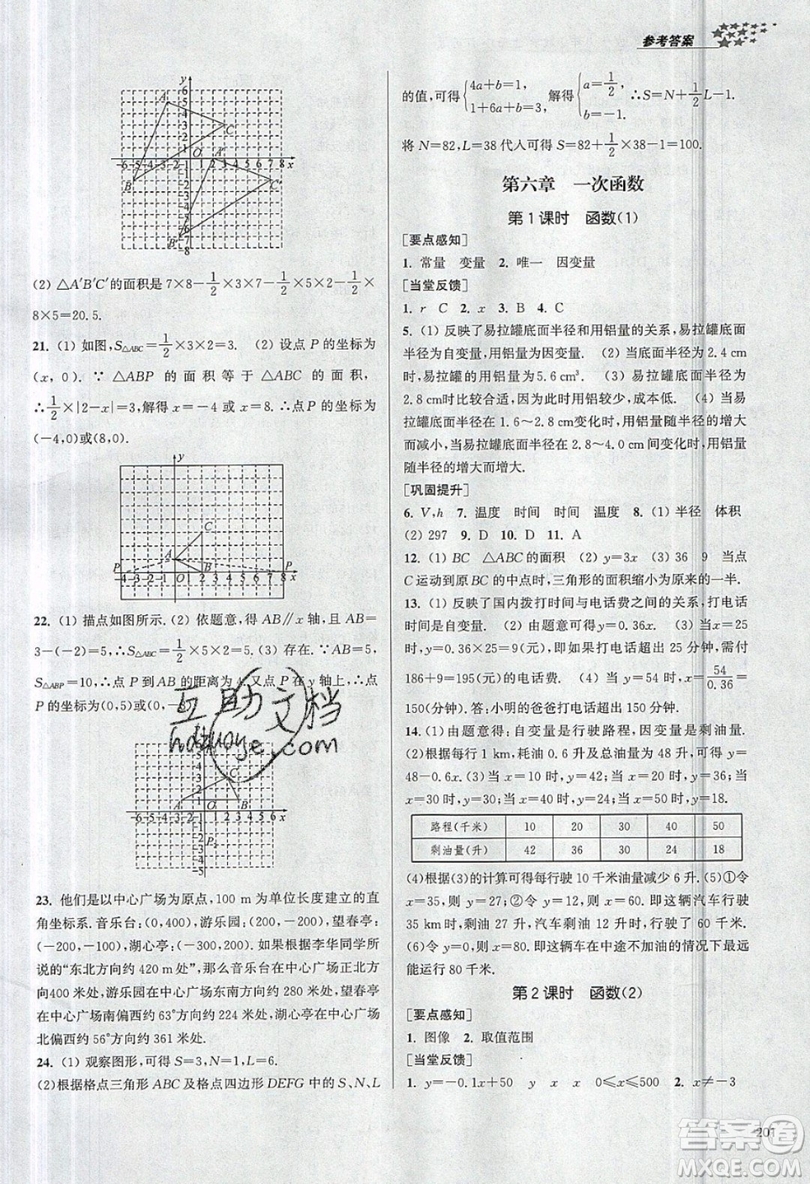 参考答案
(2) △A′B′C′的面积是 7×8−1/2×3×7−1/2×5×2−1/2×
8×5=20.5.
21. (1) 如图,S△ABC=1/2×3×2=3. (2) 设点 P 的坐标为
(x,0). ∵△ABP 的面积等于△ABC 的面积,
∴1/2×|2−x|=3,解得 x=−4 或 x=8.∴点 P 的坐标为
(−4,0)或(8,0).
22. (1) 描点如图所示. (2) 依题意,得 AB∥x 轴,且 AB=
3−(−2)=5,∴S△ABC=1/2×5×2=5. (3) 存在.∵AB=5,
S△ABP=10,∴点 P 到 AB 的距离为 4.又点 P 在 y 轴上,∴点
P 的坐标为(0,5)或(0,−3).
互助文档
hdzuoye.com
23. 他们是以中心广场为原点,100 m 为单位长度建立的直
角坐标系. 音乐台:(0,400),游乐园:(200,−200),望春亭:
(−200,−100),湖心亭:(−300,200). 如果根据李华同学所
述的“东北方向约 420 m处”,那么音乐台在中心广场正北方
向 400 米处,游乐园在中心广场东南方向约 283 米处,望春亭在
中心广场南偏西约 63°方向约 224 米处,湖心亭在中心广场
北偏西约 56°方向约 361 米处.
24. (1) 观察图形,可得 S=3,N=1,L=6.
(2)根据格点三角形 ABC 及格点四边形 DEFG 中的 S、N、L
的值,可得{4a+b=1, 1+6a+b=3, 解得{a=1/2, b=−1. ∴S=N+1/2L−1.
将 N=82,L=38 代人可得 S=82+1/2×38−1=100.
第六章 一次函数
第 1 课时 函数(1)
[要点感知]
1. 常量 变量 2. 唯一 因变量
[当堂反馈]
1. r C 2. x 3. B 4. C
5. (1) 反映了易拉罐底面半径和用铝量的关系,易拉罐底面
半径为自变量,用铝量为因变量. (2) 当底面半径为 2.4 cm
时,易拉罐的用铝量为 5.6 cm³. (3) 易拉罐底面半径为
2.8 cm时比较合适,因为此时用铝较少,成本低. (4) 当易拉
罐底面半径在 1.6~2.8 cm变化时,用铝量随半径的增大
而减小,当易拉罐底面半径在 2.8~4.0 cm变化时,用铝量
随半径的增大而增大.
[巩固提升]
6. V,h 7. 温度 时间 时间 温度 8. (1) 半径 体积
(2) 297 9. D 10. D 11. A
12. (1) BC △ABC 的面积 (2) y=3x (3) 36 9 当点
C 运动到原 BC 的中点时,三角形的面积缩小为原来的一半.
13. (1) 反映了国内拨打时间与电话费之间的关系,打电话
时间是自变量、电话费是因变量. (2) 由题意可得 y=0.36x.
(3) 当 x=25 时,y=0.36×25=9(元),即如果打电话超出 25 分钟,需付
186+9=195(元)的电话费. (4) 当 y=54 时,x=54/0.36=
150(分钟). 答:小明的爸爸打电话超出 150 分钟.
14. (1) 由题意得:自变量是行驶路程,因变量是剩油量.
(2)根据每行驶 1 km,耗油 0.6 升及总油量为 48 升可得 y=
48−0.6x. (3) 当 x=10 时,y=42,当 x=20 时,y=36,当
x=30 时,y=30,当 x=40 时,y=24,当 x=50 时,y=18.
路程(千米) 10 20 30 40 50
剩油量(升) 42 36 30 24 18
(4)根据(3)的计算可得每行驶 10 千米油量减少 6 升. (5)①令
x=35,则 y=27,②令 y=12,则 x=60. 即这辆汽车行驶
35 千米时,剩油 27 升,汽车剩油 12 升时,行驶了 60 千米.
(6)令 y=0,则 x=80,即这辆车在中途不加油的情况下最远
能运行 80 千米.
第 2 课时 函数(2)
[要点感知]
1. 图像 2. 取值范围
[当堂反馈]
1. y=−0.1x+50 y x 函数 0≤x≤500 2. x≠−3
207
答案圈
MXQE.COM